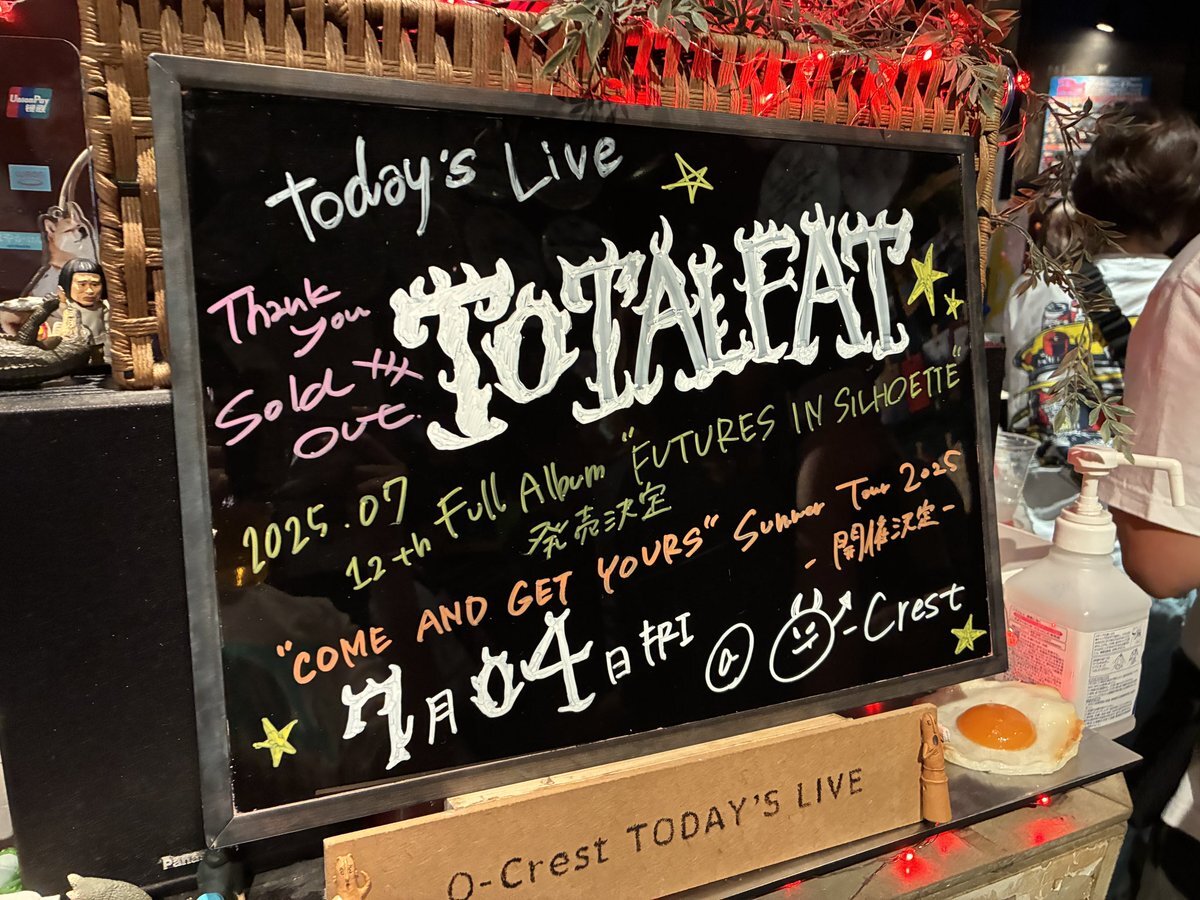 Today's Live
Thank you
Sold Out
TOTALFAT
2025.07
12th Full Album "FUTURES IN SILHOETTE"
発売決定
"COME AND GET YOURS" Summer Tour 2025
- 開催決定 -
7月04日 FRI
@ O-Crest
O-Crest TODAY'S LIVE
UnionPay
银联
Pana